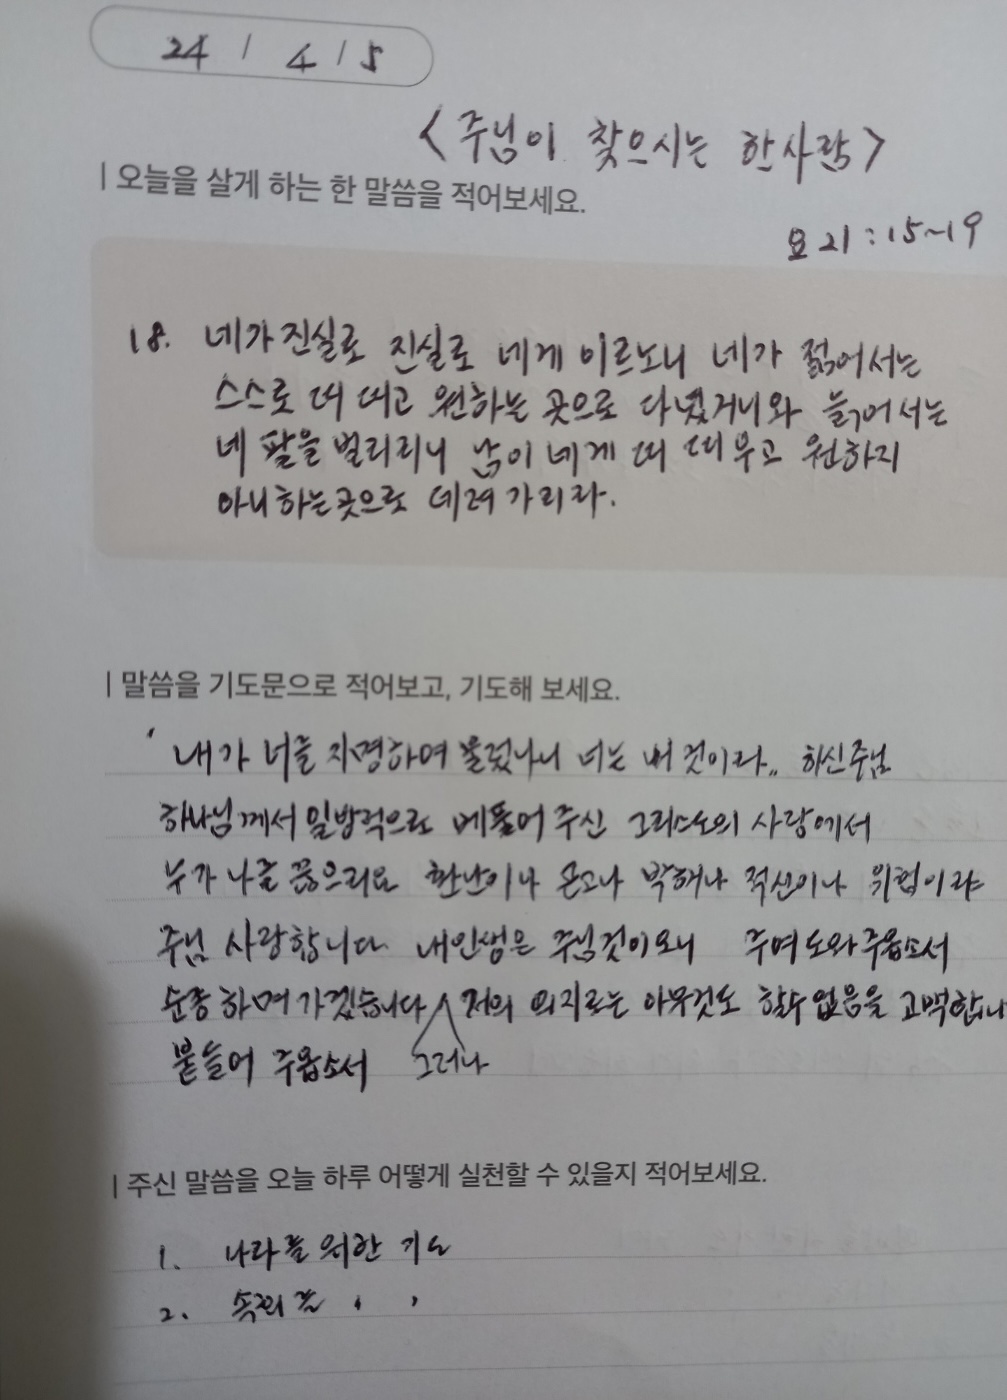 24 / 4 / 5
<주님이 찾으시는 한사람>
| 오늘을 살게 하는 한 말씀을 적어보세요.
요 21 : 15~19
18. 네가 진실로 진실로 네게 이르노니 네가 젊어서는
스스로 띠 띠고 원하는 곳으로 다녔거니와 늙어서는
네 팔을 벌리리니 남이 네게 띠 띠우고 원하지
아니하는곳으로 데려가리라.
| 말씀을 기도문으로 적어보고, 기도해 보세요.
' 내가 너를 지명하여 불렀나니 너는 내 것이라,, 하신주님
하나님께서 일방적으로 베풀어 주신 그리스도의 사랑에서
누가 나를 끊으리요 환난이나 곤고나 박해나 적신이나 위험이랴
주님 사랑합니다 내인생은 주님것이오니 주여 도와주옵소서
순종하며 가겠습니다 저의 의지로는 아무것도 할수 없음을 고백합니
붙들어 주옵소서 그러나
| 주신 말씀을 오늘 하루 어떻게 실천할 수 있을지 적어보세요.
1. 나라를 위한 기도
2. 〃 〃